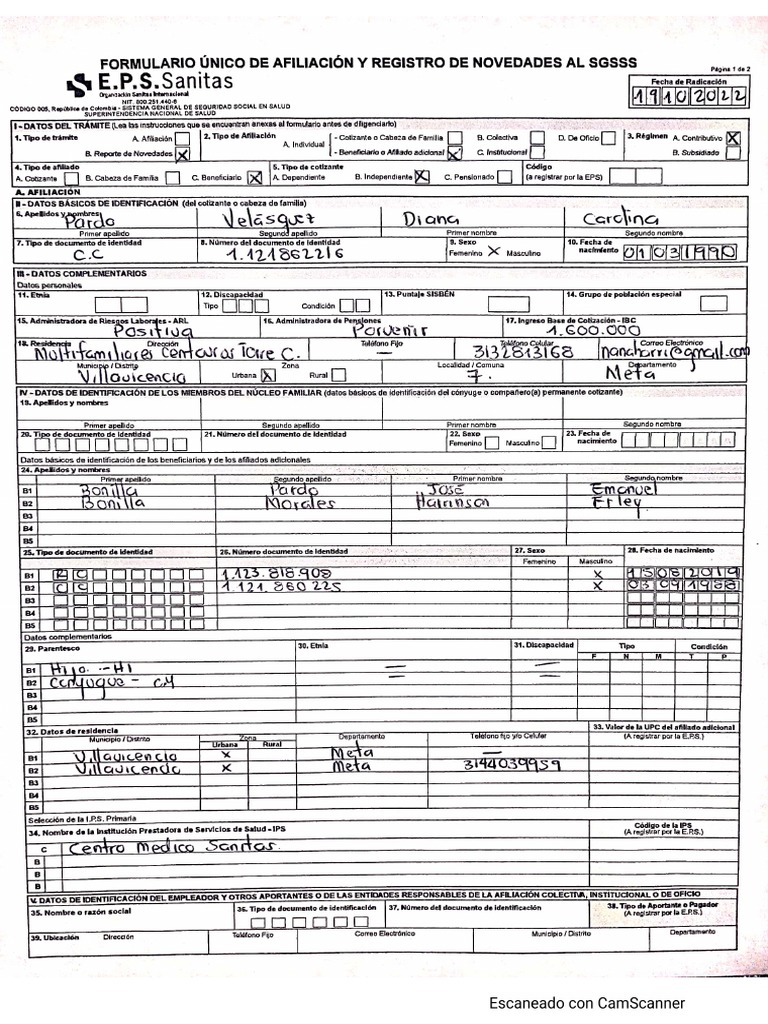 FORMULARIO ÚNICO DE AFILIACIÓN Y REGISTRO DE NOVEDADES AL SGSSS
Página 1 de 2
E.P.S. Sanitas
Organización Sanitas Internacional
NIT. 800.251.440-6
CÓDIGO 005, República de Colombia - SISTEMA GENERAL DE SEGURIDAD SOCIAL EN SALUD
SUPERINTENDENCIA NACIONAL DE SALUD
Fecha de Radicación
19102022
I - DATOS DEL TRÁMITE (Lea las instrucciones que se encuentran anexas al formulario antes de diligenciarlo)
1. Tipo de trámite A. Afiliación B. Reporte de Novedades X
2. Tipo de Afiliación A. Individual - Cotizante o Cabeza de Familia - Beneficiario o Afiliado adicional X B. Colectiva C. Institucional D. De Oficio
3. Régimen A. Contributivo X B. Subsidiado
4. Tipo de afiliado A. Cotizante B. Cabeza de Familia C. Beneficiario X
5. Tipo de cotizante A. Dependiente B. Independiente X C. Pensionado
Código (a registrar por la EPS)
A. AFILIACIÓN
II - DATOS BÁSICOS DE IDENTIFICACIÓN (del cotizante o cabeza de familia)
6. Apellidos y nombres
Pardo Velásquez Diana Carolina
Primer apellido Segundo apellido Primer nombre Segundo nombre
7. Tipo de documento de identidad 8. Número del documento de identidad 9. Sexo 10. Fecha de nacimiento
C.C 1.121862216 Femenino X Masculino 01031990
III - DATOS COMPLEMENTARIOS
Datos personales
11. Etnia 12. Discapacidad Tipo Condición 13. Puntaje SISBÉN 14. Grupo de población especial
15. Administradora de Riesgos Laborales - ARL 16. Administradora de Pensiones 17. Ingreso Base de Cotización - IBC
Positiva Porvenir 1.600.000
18. Residencia Dirección Teléfono Fijo Teléfono Celular Correo Electrónico
Multifamiliares Centauros Torre C. — 3132813168 nanaborri@gmail.com
Municipio / Distrito Zona Localidad / Comuna Departamento
Villavicencio Urbana X Rural 7. Meta
IV - DATOS DE IDENTIFICACIÓN DE LOS MIEMBROS DEL NÚCLEO FAMILIAR (datos básicos de identificación del cónyuge o compañero(a) permanente cotizante)
19. Apellidos y nombres
Primer apellido Segundo apellido Primer nombre Segundo nombre
20. Tipo de documento de identidad 21. Número del documento de identidad 22. Sexo Femenino Masculino 23. Fecha de nacimiento
Datos básicos de identificación de los beneficiarios y de los afiliados adicionales
24. Apellidos y nombres
Primer apellido Segundo apellido Primer nombre Segundo nombre
B1 Bonilla Pardo José Emanuel
B2 Bonilla Morales Hairinson Erley
B3
B4
B5
25. Tipo de documento de identidad 26. Número documento de identidad 27. Sexo 28. Fecha de nacimiento
Femenino Masculino
B1 RC 1.123.818.908 X 15082019
B2 CC 1.121.860225 X 03091988
B3
B4
B5
Datos complementarios
29. Parentesco 30. Etnia 31. Discapacidad Tipo Condición
F N M T P
B1 Hijo - HI — —
B2 Conyugue - CM — —
B3
B4
B5
32. Datos de residencia 33. Valor de la UPC del afiliado adicional
Municipio / Distrito Zona Departamento Teléfono fijo y/o Celular (A registrar por la E.P.S.)
Urbana Rural
B1 Villavicencio X Meta —
B2 Villavicencio X Meta 3144039959
B3
B4
B5
Selección de la I.P.S. Primaria
34. Nombre de la Institución Prestadora de Servicios de Salud - IPS Código de la IPS
(A registrar por la E.P.S.)
C Centro Medico Sanitas.
B
B
B
V. DATOS DE IDENTIFICACIÓN DEL EMPLEADOR Y OTROS APORTANTES O DE LAS ENTIDADES RESPONSABLES DE LA AFILIACIÓN COLECTIVA, INSTITUCIONAL O DE OFICIO
35. Nombre o razón social 36. Tipo de documento de identificación 37. Número del documento de identificación 38. Tipo de Aportante o Pagador
(A registrar por la E.P.S.)
39. Ubicación Dirección Teléfono Fijo Correo Electrónico Municipio / Distrito Departamento
Escaneado con CamScanner